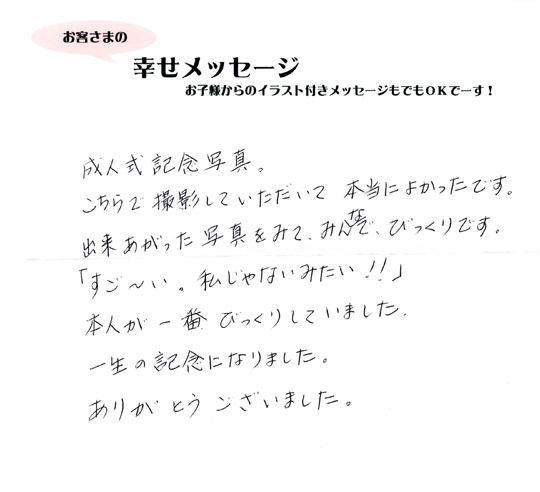 お客さまの
幸せメッセージ
お子様からのイラスト付きメッセージもでもOKでーす！
成人式記念写真。
こちらで撮影していただいて 本当によかったです。
出来あがった写真をみて、みんなで、びっくりです。
「すご～い。私じゃないみたい!!」
本人が一番びっくりしていました.
一生の記念になりました。
ありがとうございました。